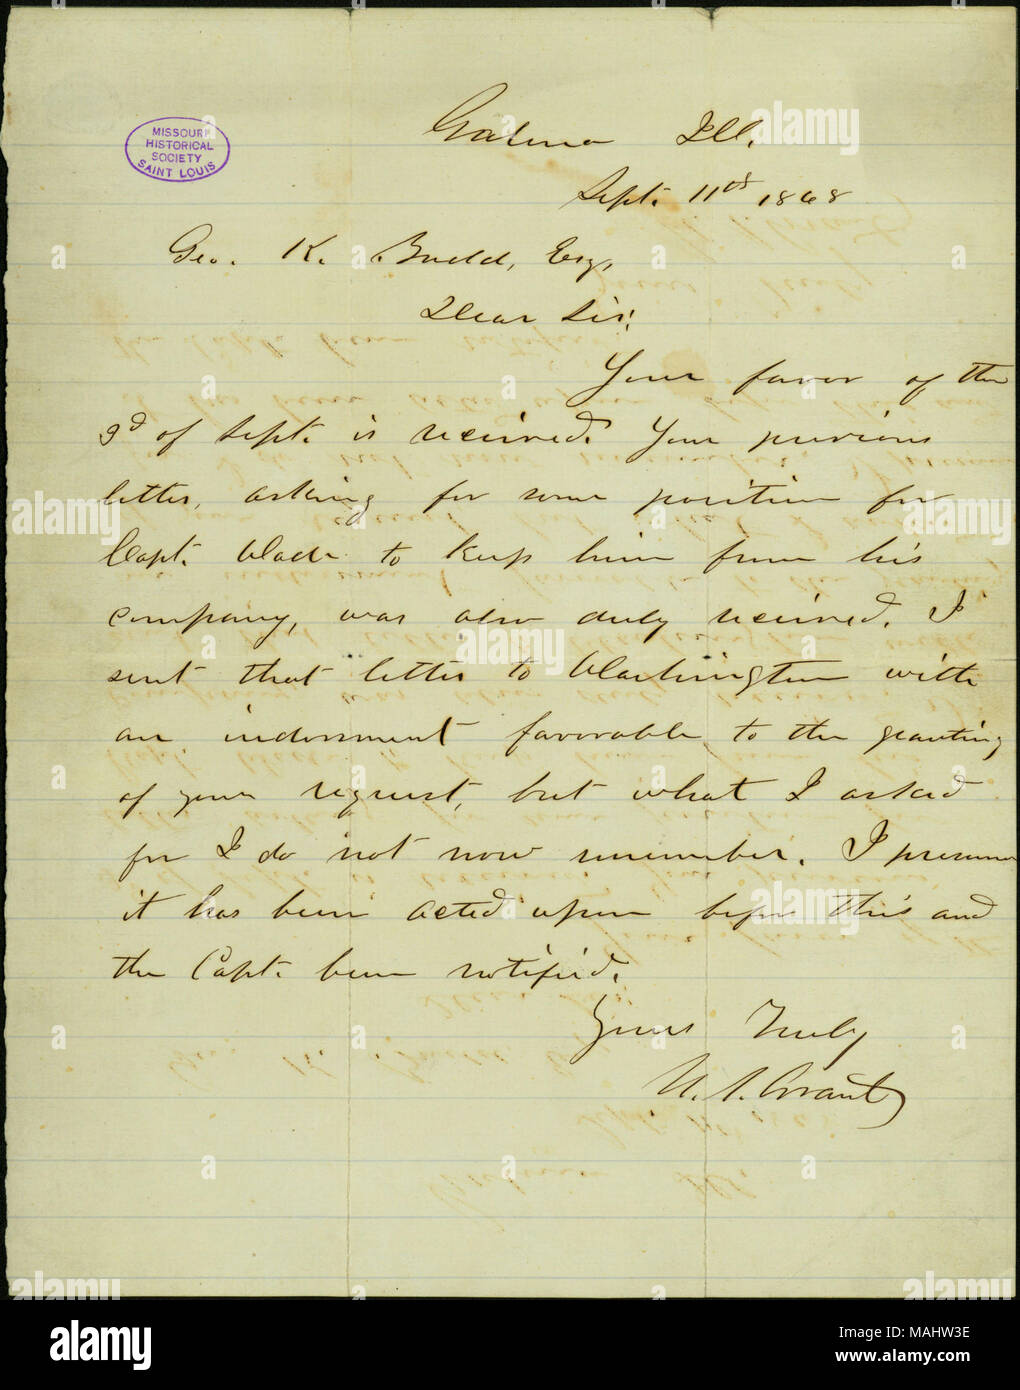 MISSOURI
HISTORICAL
SOCIETY
SAINT LOUIS
Galena Ill.
Sept. 11th 1868
Geo. K. Budd, Esq,
Dear Sir:
Your favor of the
3d of Sept. is received. Your previous
letter, asking for some position for
Capt. Wade to keep him from his
company, was also duly received. I
sent that letter to Washington with
an indorsment favorable to the granting
of your request, but what I asked
for I do not now remember. I presume
it has been acted upon before this and
the Capt. been notified.
Yours Truly
U. S. Grant
alamy
Image ID: MAHW3E
www.alamy.com